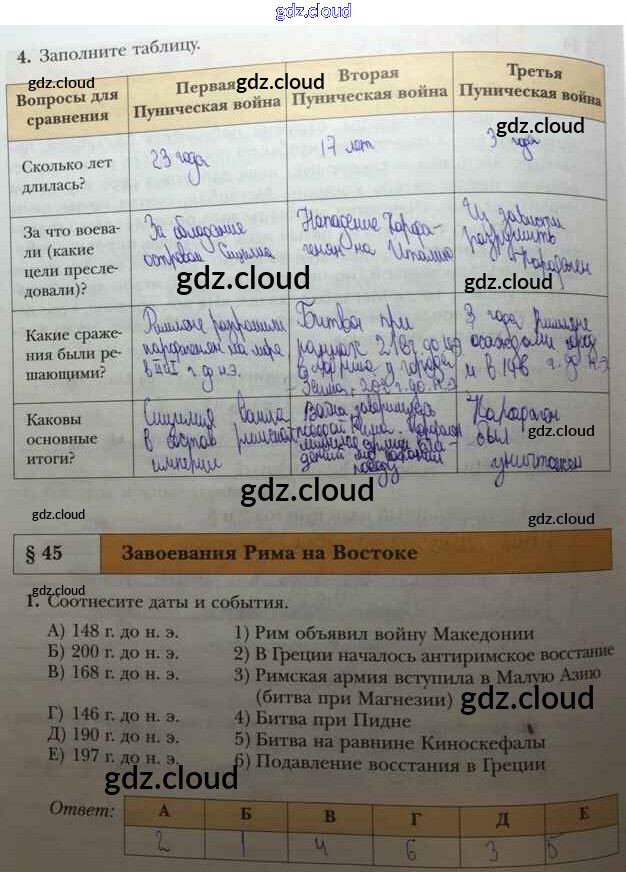 gdz.cloud
4. Заполните таблицу.
Вопросы для сравнения
Первая Пуническая война
Вторая Пуническая война
Третья Пуническая война
gdz.cloud
gdz.cloud
gdz.cloud
gdz.cloud
Сколько лет
длилась?
23 года
17 лет
3 года
За что воева-
ли (какие
цели пресле-
довали)?
За обладание
островом Сицилия
Нападение Карфа-
генян на Италию
Из зависти
разрушить
Карфаген
gdz.cloud
gdz.cloud
Какие сраже-
ния были ре-
шающими?
Римляне разгромили
карфагенян на море
в г. до н.э.
Битва при
Каннах 216г до нэ
у города
Зама, 202 г. до н.э
3 года римляне
осаждали город
и в 146 г. до н.э.
Каковы
основные
итоги?
Сицилия вошла
в состав римской
империи
Война завершилась
победой Рима. Карфаген
Карфаген
был
уничтожен
gdz.cloud
gdz.cloud
gdz.cloud
gdz.cloud
§ 45 Завоевания Рима на Востоке
gdz.cloud
1. Соотнесите даты и события.
А) 148 г. до н. э.
Б) 200 г. до н. э.
В) 168 г. до н. э.
Г) 146 г. до н. э.
Д) 190 г. до н. э.
Е) 197 г. до н. э.
1) Рим объявил войну Македонии
2) В Греции началось антиримское восстание
3) Римская армия вступила в Малую Азию
(битва при Магнезии)
4) Битва при Пидне
5) Битва на равнине Киноскефалы
6) Подавление восстания в Греции
gdz.cloud
gdz.cloud
Ответ:
А Б В Г Д Е
2 1 4 6 3 5